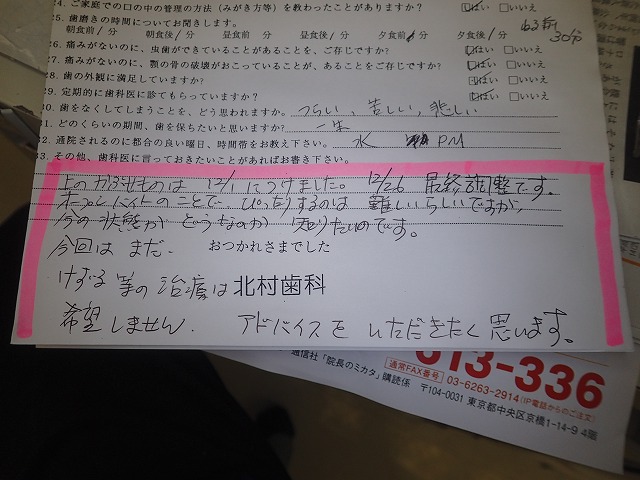 24. ご家庭での口の中の管理の方法(みがき方等)を教わったことがありますか? □はい □いいえ
25. 歯磨きの時間についてお聞きします。
朝食前/分 朝食後/分 昼食前 分 昼食後/分 夕食前/分 夕食後/分 30分
26. 痛みがないのに、虫歯ができていることがあることを、ご存じですか? □はい □いいえ
27. 痛みがないのに、顎の骨の破壊がおこっていることが、あることをご存じですか? □はい □いいえ
28. 歯の外観に満足していますか? □はい □いいえ
29. 定期的に歯科医に診てもらっていますか? □はい □いいえ
30. 歯をなくしてしまうことを、どう思われますか。 つらい、苦しい、悲しい
31. どのくらいの期間、歯を保ちたいと思いますか? 一生
32. 通院されるのに都合の良い曜日、時間帯をお教え下さい。 水 PM
33. その他、歯科医に言っておきたいことがあればお書き下さい。
上のかぶせものは 12/1 につけました。 12/26 最終調整です。
オープンバイトのことで、ぴったりするのは 難しいらしいですが、
今の状態が どうなのか 知りたいのです。
今回は まだ、 おつかれさまでした
けずる 等の 治療は 北村歯科
希望しません. アドバイスを いただきたく 思います。
613-336
通信社「院長のミカタ」購読係
通常FAX番号 03-6263-2914(IP電話からのご注文)
〒104-0031 東京都中央区京橋1-14-9 4階